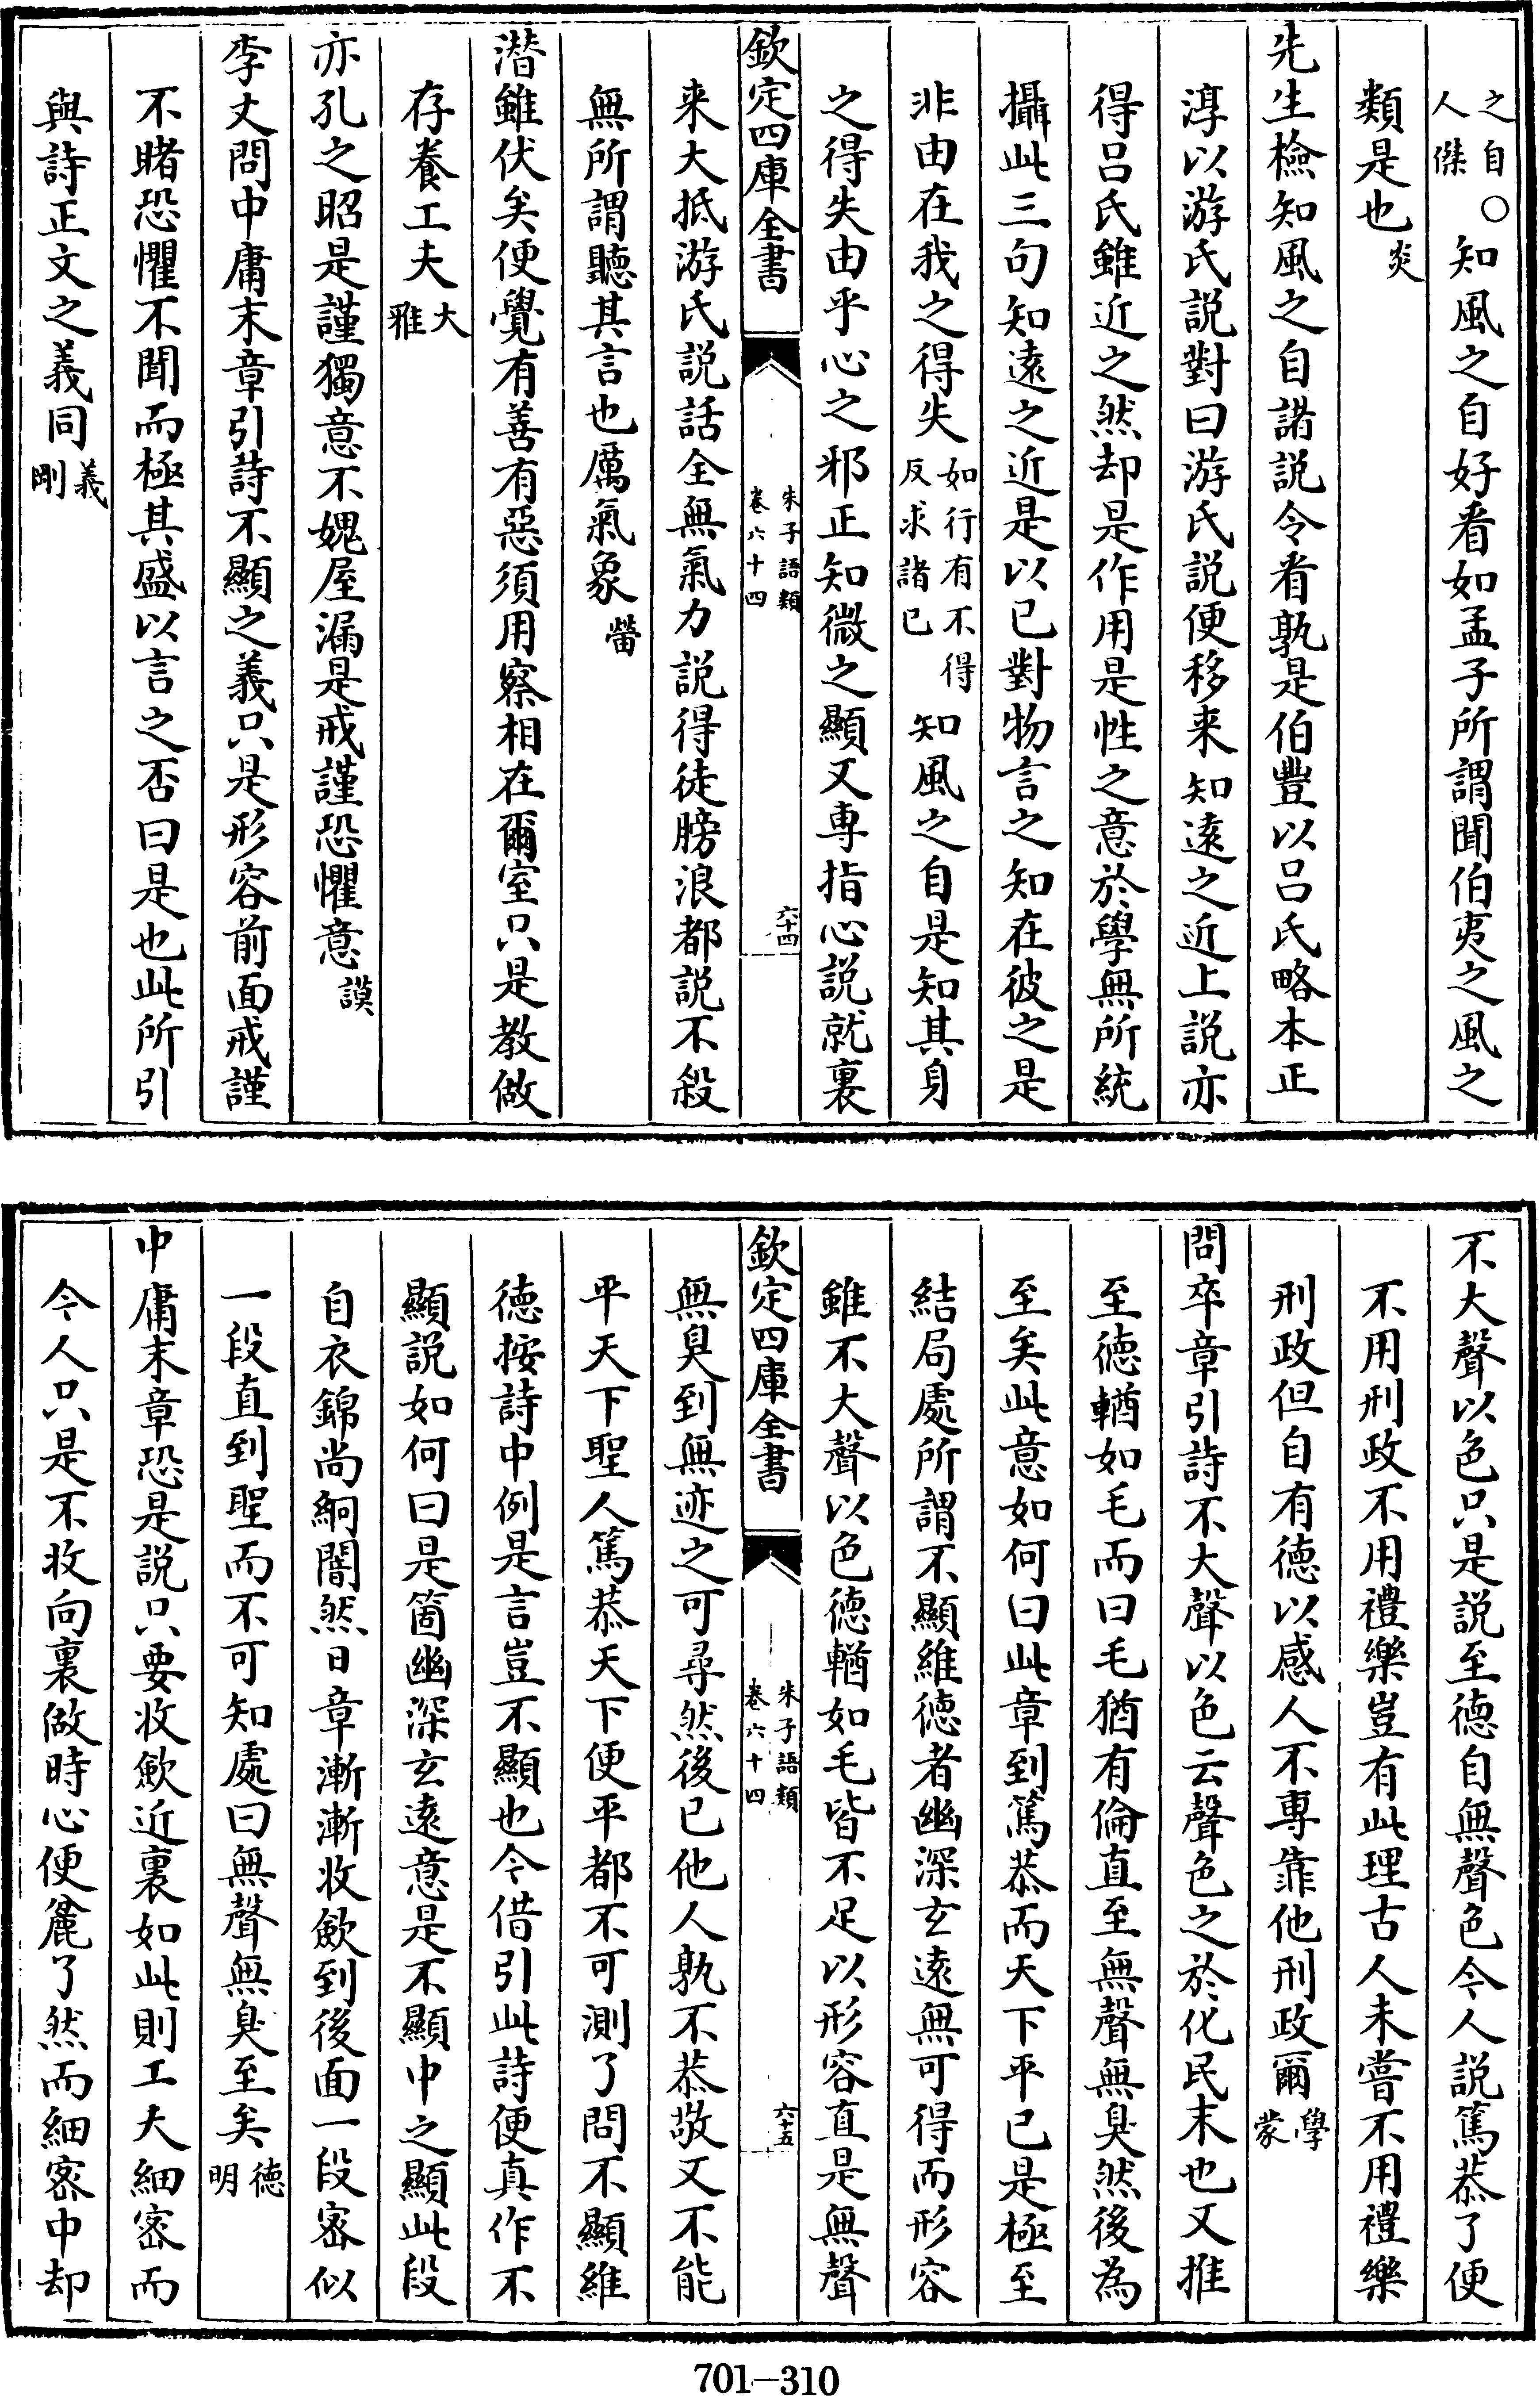 之自人傑○知風之自好看如孟子所謂聞伯夷之風之
類是也炎
先生檢知風之自諸説令看孰是伯豐以呂氏略本正
淳以游氏説對曰游氏説便移来知遠之近上説亦
得呂氏雖近之然却是作用是性之意於學無所統
攝此三句知遠之近是以已對物言之知在彼之是
非由在我之得失如行有不得反求諸已知風之自是知其身
之得失由乎心之邪正知微之顯又専指心説就裏
欽定四庫全書
朱子語類
卷六十四
六十四
来大抵游氏説話全無氣力説得徒膀浪都説不殺
無所謂聽其言也厲氣象㽦
潛雖伏矣便覺有善有惡須用察相在爾室只是教做
存養工夫大雅
亦孔之昭是謹獨意不媿屋漏是戒謹恐懼意謨
李丈問中庸末章引詩不顯之義只是形容前面戒謹
不睹恐懼不聞而極其盛以言之否曰是也此所引
與詩正文之義同義剛
不大聲以色只是説至徳自無聲色今人説篤恭了便
不用刑政不用禮樂豈有此理古人未嘗不用禮樂
刑政但自有徳以感人不専靠他刑政爾學蒙
問卒章引詩不大聲以色云聲色之於化民末也又推
至徳輶如毛而曰毛猶有倫直至無聲無臭然後為
至矣此意如何曰此章到篤恭而天下平已是極至
結局處所謂不顯維徳者幽深玄遠無可得而形容
雖不大聲以色徳輶如毛皆不足以形容直是無聲
欽定四庫全書
朱子語類
卷六十四
六十五
無臭到無迹之可尋然後已他人孰不恭敬又不能
平天下聖人篤恭天下便平都不可測了問不顯維
徳按詩中例是言豈不顯也今借引此詩便真作不
顯説如何曰是箇幽深玄遠意是不顯中之顯此段
自衣錦尚絅闇然日章漸漸收歛到後面一段宻似
一段直到聖而不可知處曰無聲無臭至矣徳明
中庸末章恐是説只要收歛近裏如此則工夫細宻而
今人只是不收向裏做時心便麄了然而細宻中却
701—310